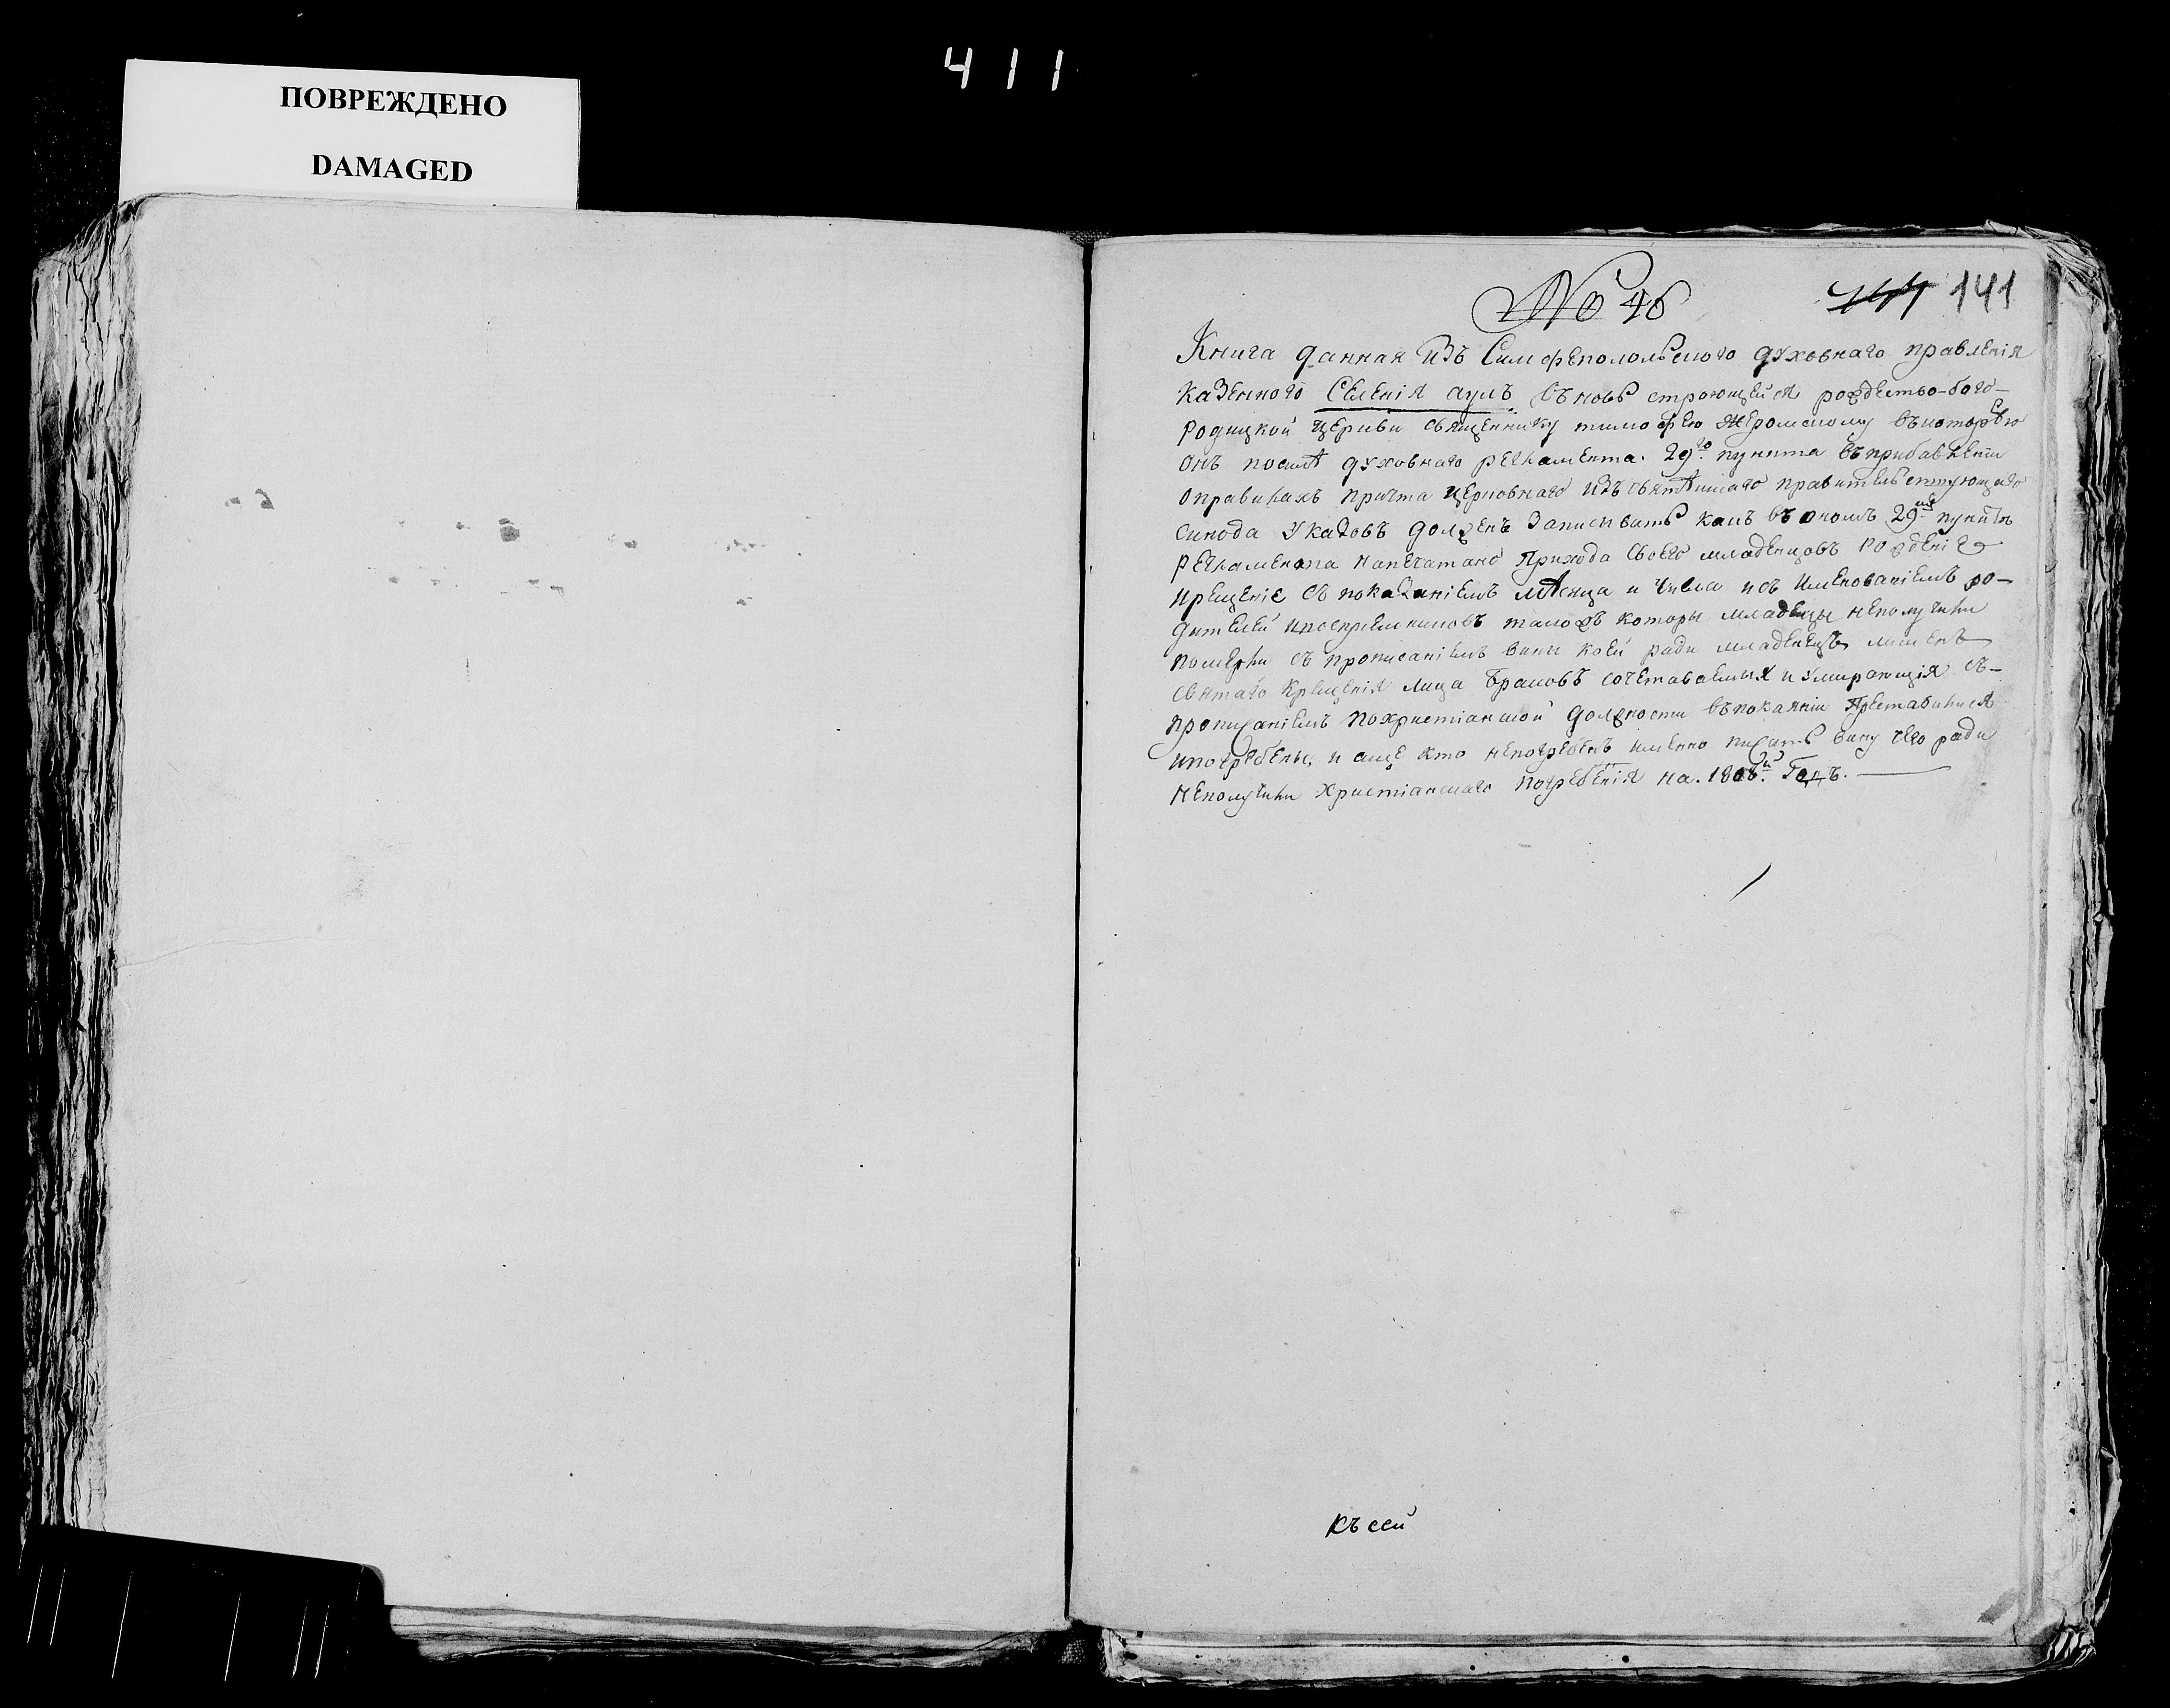 411
ПОВРЕЖДЕНО
DAMAGED
№ 46
141
Книга данная изъ Симферопольского духовнаго правленія
казенного селенія аулъ вновь строющейся рождество-бого-
родицкой церкви священнику тимофею въкоторую
онъ посилѣ духовнаго регламента. 29го. пункта въприбавленіи
оправилахъ причта церковнаго изъ святѣйшаго правительствующаго
синода указовъ долженъ записивать какъ въ ономъ 29мъ пунктѣ
регламента напечатано прихода своего младенцовъ рожденіе
икрещеніе съ показаніемъ мѣсяца и числа исъ именованіемъ ро-
дителей ивоспрѣемниковъ такожъ которы младенцы неполучили
померли съ прописаніемъ вини коей ради младенецъ лишенъ
святаго крещенія лица браковъ сочетаваемыя иумирающія съ-
прописаніемъ похристіанской должности въпокаяніи преставилися
ипогребены, и аще кто непогребенъ именно писать вину чего ради
неполучили христіанскаго погребенія на. 1808й. Годъ.
къ сей